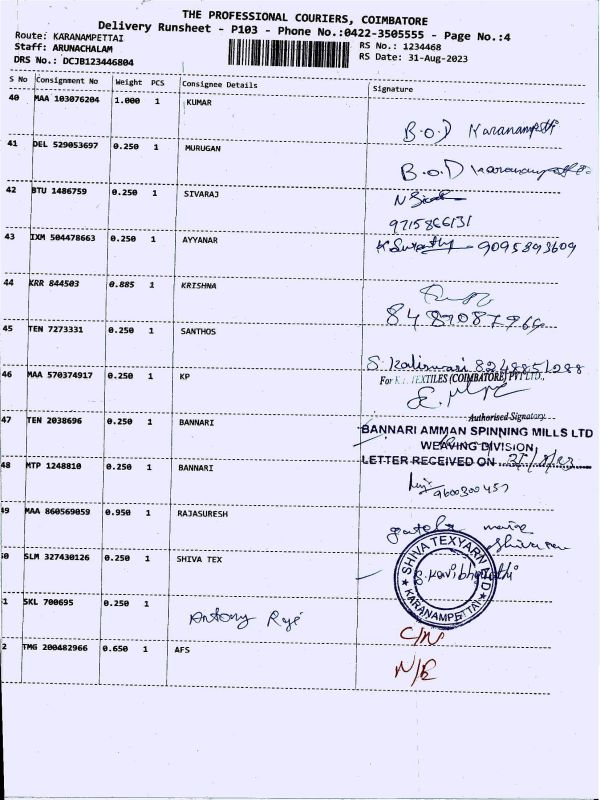 THE PROFESSIONAL COURIERS, COIMBATORE
Delivery Runsheet - P103 - Phone No.:0422-3505555 - Page No.:4
Route: KARANAMPETTAI
Staff: ARUNACHALAM
DRS No.: DCJB123446804
RS No.: 1234468
RS Date: 31-Aug-2023
S No Consignment No Weight PCS Consignee Details Signature
40 MAA 103076204 1.000 1 KUMAR
B.O.D Karanampetti
41 DEL 529053697 0.250 1 MURUGAN
B.O.D
42 BTU 1486759 0.250 1 SIVARAJ
9715866131
43 IXM 504478663 0.250 1 AYYANAR
9095893609
44 KRR 844503 0.885 1 KRISHNA
45 TEN 7273331 0.250 1 SANTHOS
46 MAA 570374917 0.250 1 KP
For TEXTILES (COIMBATORE) PVT LTD.,
Authorised Signatory
47 TEN 2038696 0.250 1 BANNARI
BANNARI AMMAN SPINNING MILLS LTD
WEAVING DIVISION
LETTER RECEIVED ON
48 MTP 1248810 0.250 1 BANNARI
9600300457
49 MAA 860569059 0.950 1 RAJASURESH
50 SLM 327430126 0.250 1 SHIVA TEX
SHIVA TEXYARN LTD
S. Kavibharathi
KARANAMPETTAI
1 SKL 700695 0.250 1
Antony Raj
C/N
2 TMG 200482966 0.650 1 AFS
N/R